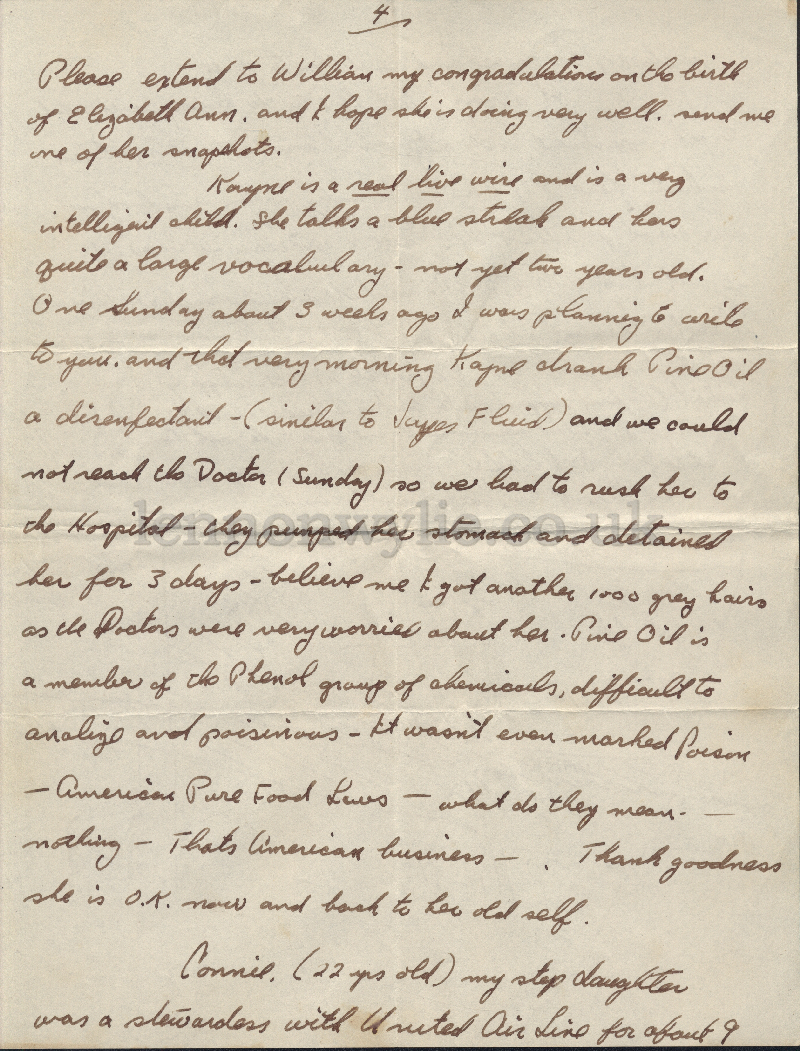 4
Please extend to William my congradulations on the birth
of Elizabeth Ann. and I hope she is doing very well. send me
one of her snapshots.
Kayne is a real live wire and is a very
intelligent child. She talks a blue streak and has
quite a large vocabulary - not yet two years old.
One Sunday about 3 weeks ago I was planning to write
to you. and that very morning Kayne drank Pine Oil
a disenfectant - (similar to Jayes Fluid) and we could
not reach the Doctor (Sunday) so we had to rush her to
the Hospital - they pumped her stomach and detained
her for 3 days - believe me I got another 1000 grey hairs
as the Doctors were very worried about her. Pine Oil is
a member of the Phenol group of chemicals, difficult to
analize and poisinous - It wasn't even marked Poison
- American Pure Food Laws - what do they mean. -
nothing - Thats American business - . Thank goodness
she is O.K. now and back to her old self.
Connie. (22 yrs old) my step daughter
was a stewardess with United Air Line for about 9
lennonwylie.co.uk